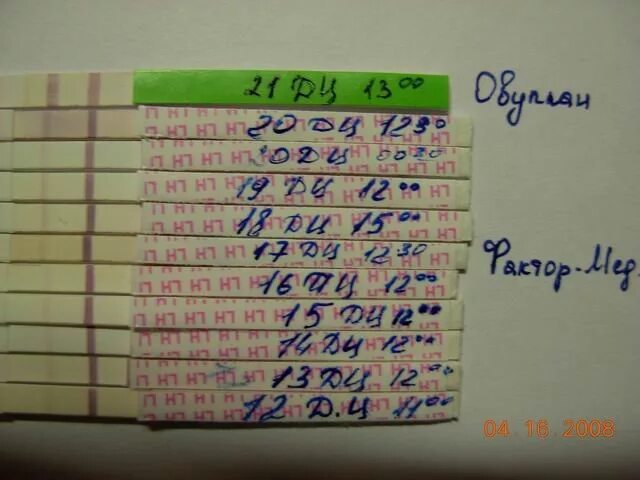 21 ДЦ 13 00 Овуплан
20 ДЦ 12 30
20 ДЦ 00 30
19 ДЦ 12 00
18 ДЦ 15 00
17 ДЦ 12 30 Фактор-Мед.
16 ДЦ 12 00
15 ДЦ 12 00
14 ДЦ 12 00
13 ДЦ 12 00
12 Д.Ц 11 00
04 16 2008